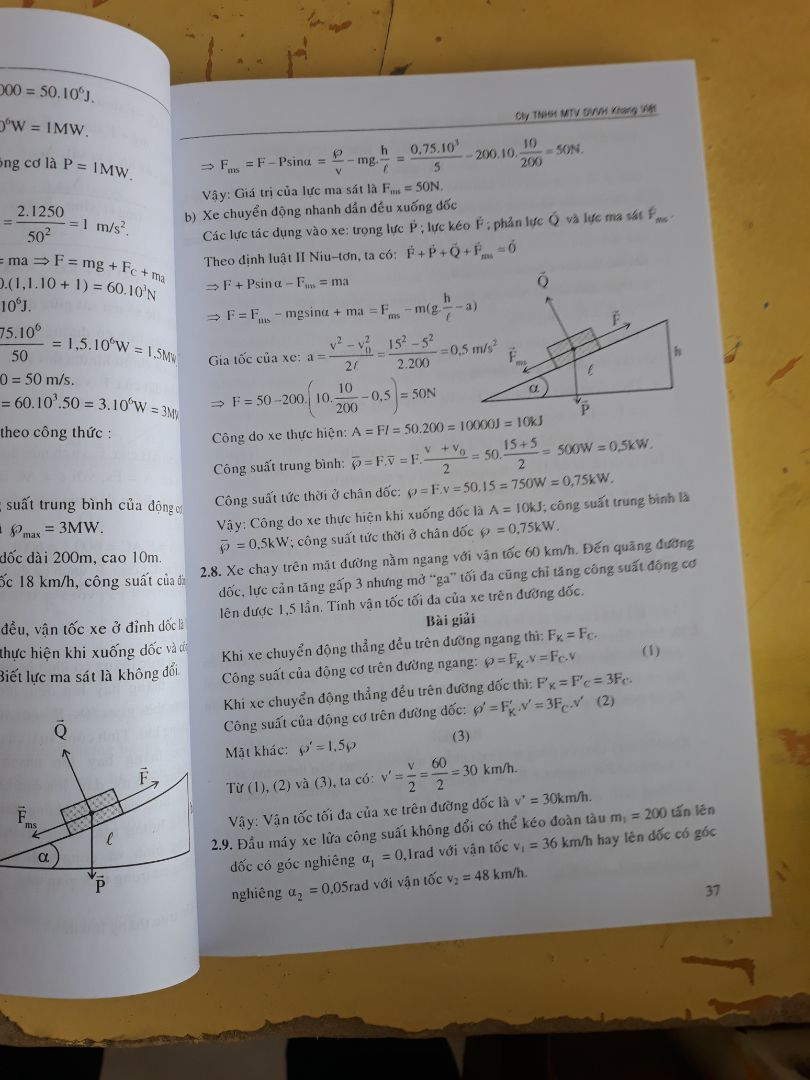 000 = 50.10⁶J.
0⁶W = 1MW.
ông cơ là P = 1MW.
= 2.1250/50² = 1 m/s².
= ma ⇒ F = mg + F_C + ma
0.(1,1.10 + 1) = 60.10³N
10⁶J.
75.10⁶/50 = 1,5.10⁶W = 1,5MW
0 = 50 m/s.
= 60.10³.50 = 3.10⁶W = 3MW
theo công thức :
suất trung bình của động cơ
℘max = 3MW.
dốc dài 200m, cao 10m.
ốc 18 km/h, công suất của
đều, vận tốc xe ở đỉnh dốc là
thực hiện khi xuống dốc và
Biết lực ma sát là không đổi.
Q⃗
F⃗
F⃗ms
ℓ
α
P⃗
Cty TNHH MTV DVVH Khang Việt
⇒ Fms = F – Psinα = ℘/v – mg.h/ℓ = 0,75.10³/5 – 200.10.10/200 = 50N.
Vậy: Giá trị của lực ma sát là Fms = 50N.
b) Xe chuyển động nhanh dần đều xuống dốc
Các lực tác dụng vào xe: trọng lực P⃗ ; lực kéo F⃗ ; phản lực Q⃗ và lực ma sát F⃗ms.
Theo định luật II Niu–tơn, ta có: F⃗ + P⃗ + Q⃗ + F⃗ms = 0⃗
⇒ F + Psinα – Fms = ma
⇒ F = Fms – mgsinα + ma = Fms – m(g.h/ℓ – a)
Gia tốc của xe: a = (v² – v₀²)/2ℓ = (15² – 5²)/2.200 = 0,5 m/s²
⇒ F = 50 – 200.(10.10/200 – 0,5) = 50N
Q⃗
F⃗
F⃗ms
h
ℓ
α
P⃗
Công do xe thực hiện: A = Fl = 50.200 = 10000J = 10kJ
Công suất trung bình: ℘̄ = F.v̄ = F.(v + v₀)/2 = 50.(15 + 5)/2 = 500W = 0,5kW.
Công suất tức thời ở chân dốc: ℘ = F.v = 50.15 = 750W = 0,75kW.
Vậy: Công do xe thực hiện khi xuống dốc là A = 10kJ; công suất trung bình là
℘̄ = 0,5kW; công suất tức thời ở chân dốc ℘ = 0,75kW.
2.8. Xe chạy trên mặt đường nằm ngang với vận tốc 60 km/h. Đến quãng đường
dốc, lực cản tăng gấp 3 nhưng mở “ga” tối đa cũng chỉ tăng công suất động cơ
lên được 1,5 lần. Tính vận tốc tối đa của xe trên đường dốc.
Bài giải
Khi xe chuyển động thẳng đều trên đường ngang thì: F_K = F_C.
Công suất của động cơ trên đường ngang: ℘ = F_K.v = F_C.v (1)
Khi xe chuyển động thẳng đều trên đường dốc thì: F'_K = F'_C = 3F_C.
Công suất của động cơ trên đường dốc: ℘' = F'_K.v' = 3F_C.v' (2)
Mặt khác: ℘' = 1,5℘ (3)
Từ (1), (2) và (3), ta có: v' = v/2 = 60/2 = 30 km/h.
Vậy: Vận tốc tối đa của xe trên đường dốc là v' = 30km/h.
2.9. Đầu máy xe lửa công suất không đổi có thể kéo đoàn tàu m₁ = 200 tấn lên
dốc có góc nghiêng α₁ = 0,1rad với vận tốc v₁ = 36 km/h hay lên dốc có góc
nghiêng α₂ = 0,05rad với vận tốc v₂ = 48 km/h.
37